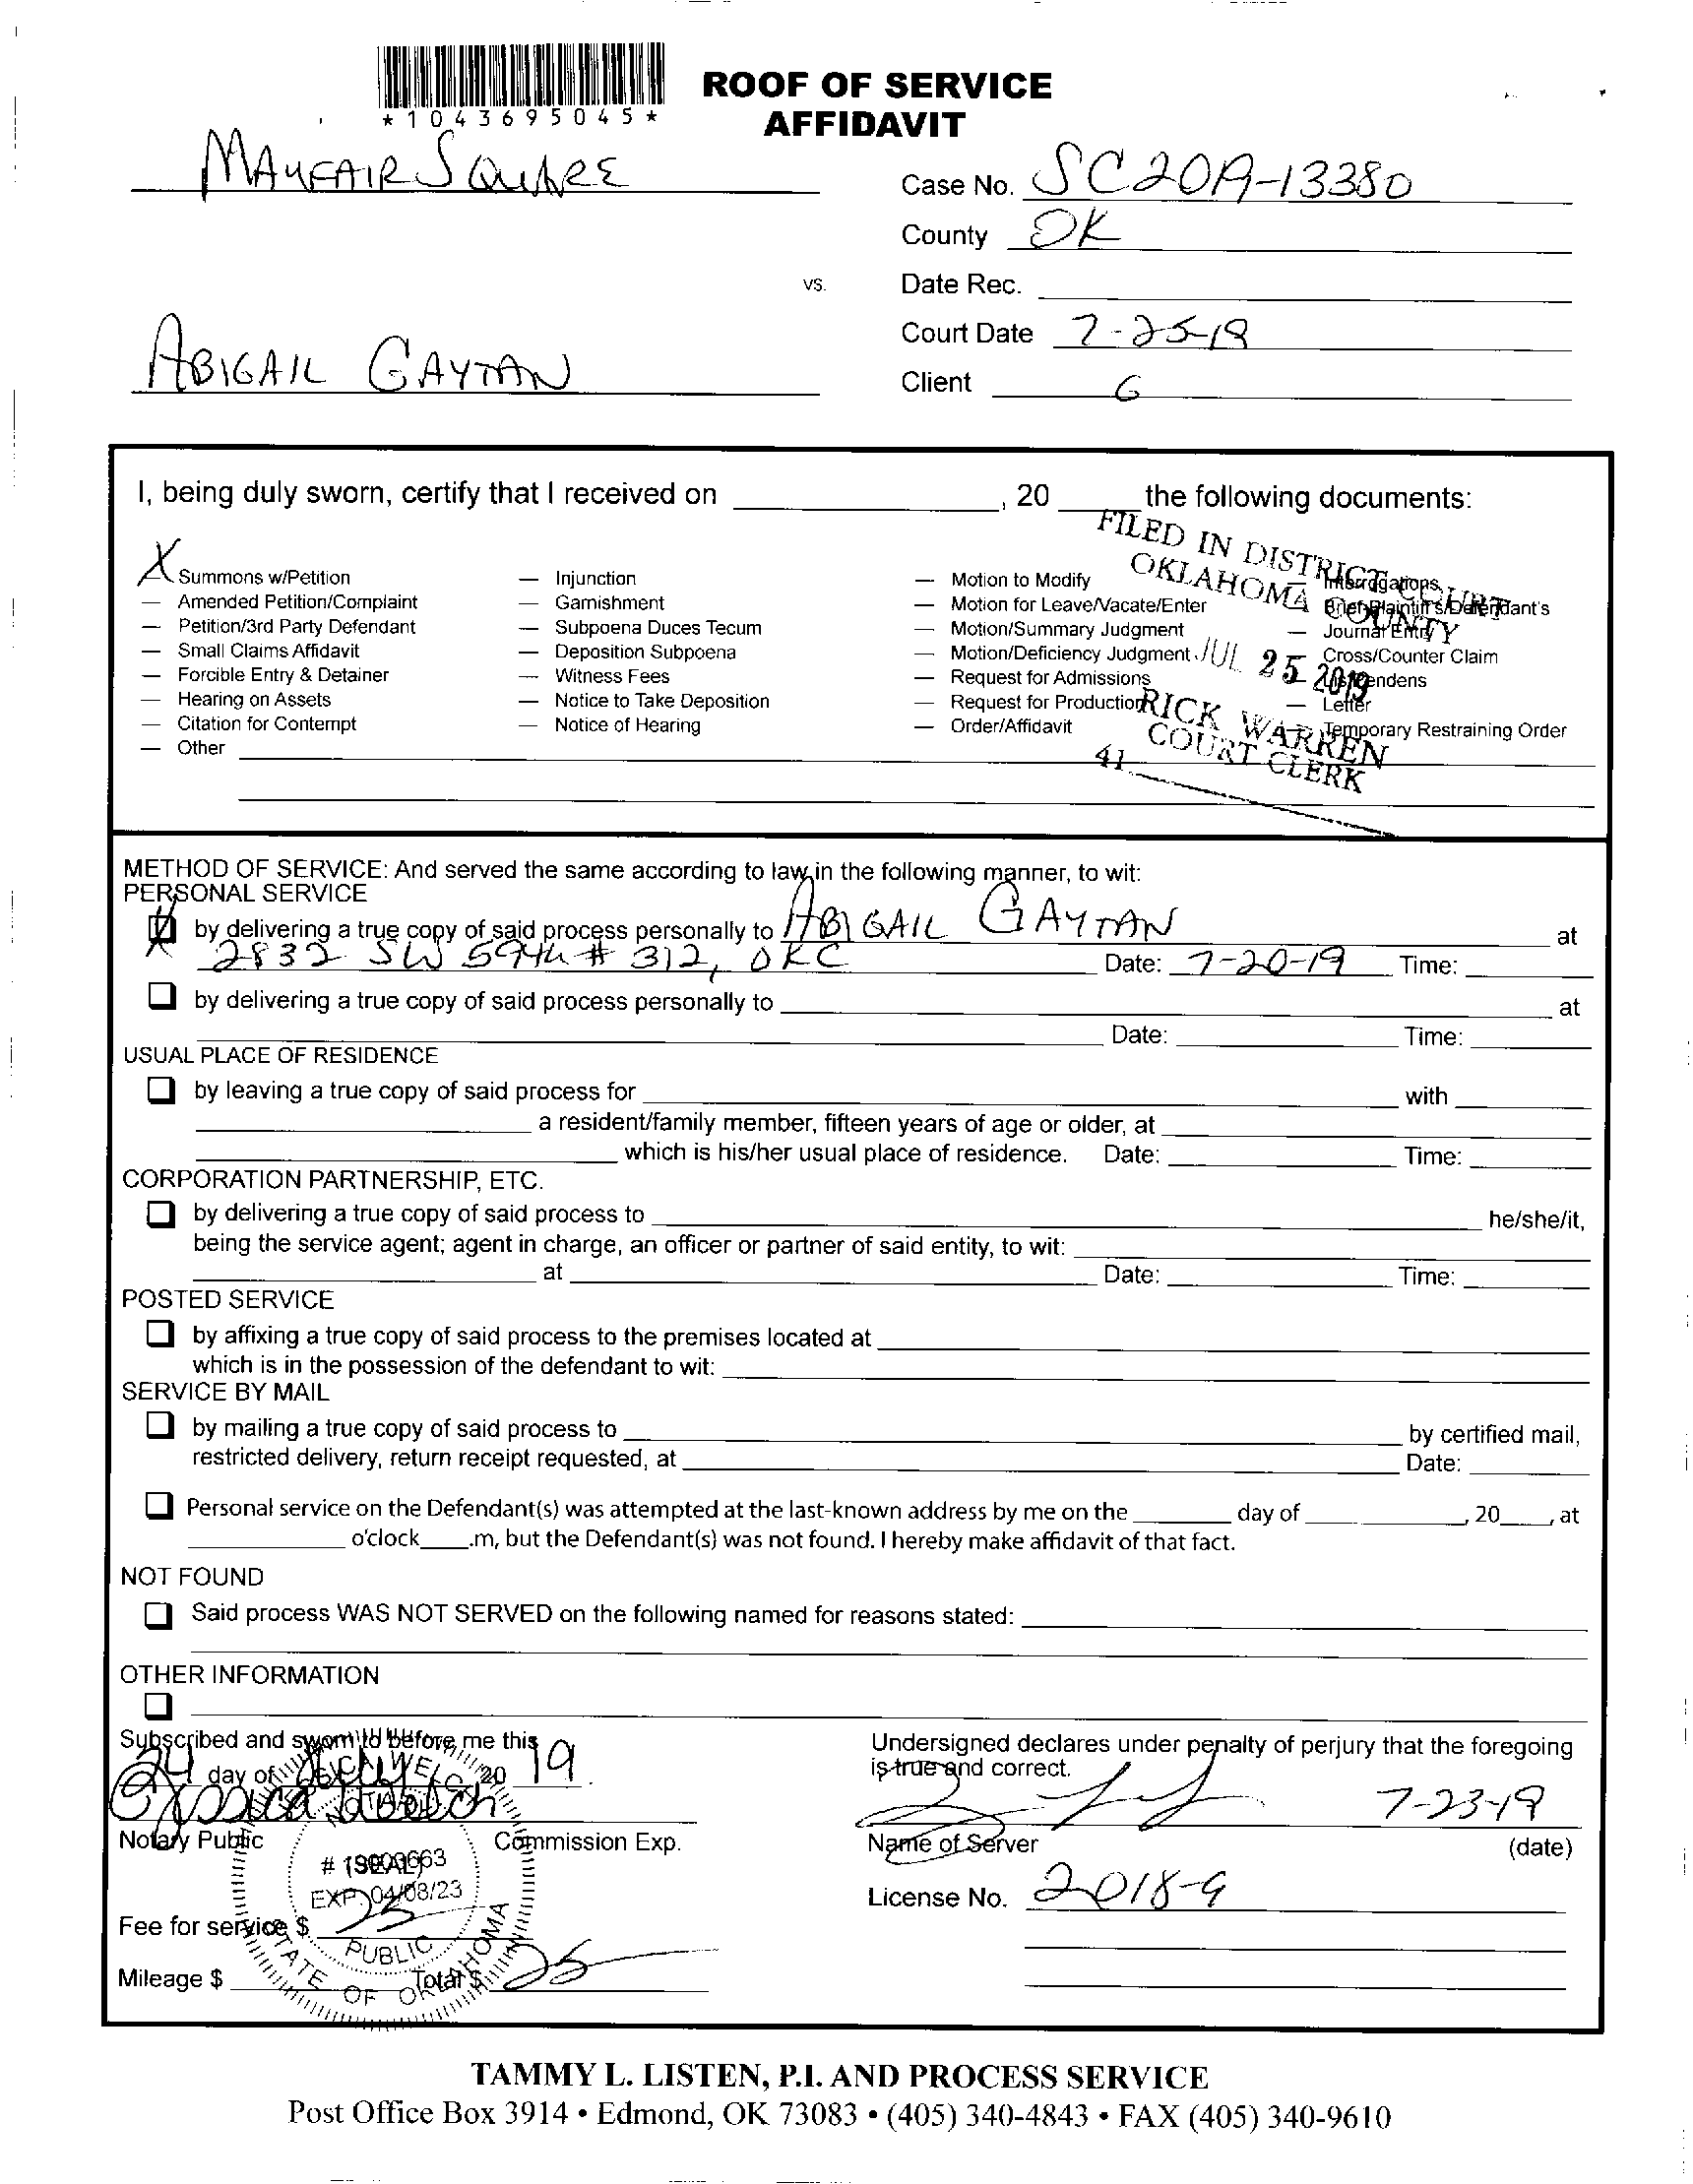 ROOF OF SERVICE
AFFIDAVIT
*1043695045*
MAYFAIR SQUARE
Case No. SC2019-13380
County OK
vs.
Date Rec.
Court Date 7-25-19
ABIGAIL GAYTAN
Client G
I, being duly sworn, certify that I received on , 20 the following documents:
FILED IN DISTRICT COURT
OKLAHOMA COUNTY
JUL 25 2019
RICK WARREN
COURT CLERK
41
X Summons w/Petition
Amended Petition/Complaint
Petition/3rd Party Defendant
Small Claims Affidavit
Forcible Entry & Detainer
Hearing on Assets
Citation for Contempt
Other
Injunction
Garnishment
Subpoena Duces Tecum
Deposition Subpoena
Witness Fees
Notice to Take Deposition
Notice of Hearing
Motion to Modify
Motion for Leave/Vacate/Enter
Motion/Summary Judgment
Motion/Deficiency Judgment
Request for Admissions
Request for Production
Order/Affidavit
Interrogations
Brief-Plaintiff's/Defendant's
Journal Entry
Cross/Counter Claim
Lis Pendens
Letter
Temporary Restraining Order
METHOD OF SERVICE: And served the same according to law in the following manner, to wit:
PERSONAL SERVICE
by delivering a true copy of said process personally to ABIGAIL GAYTAN at
2832 SW 59th # 312, OKC Date: 7-20-19 Time:
by delivering a true copy of said process personally to at
Date: Time:
USUAL PLACE OF RESIDENCE
by leaving a true copy of said process for with
a resident/family member, fifteen years of age or older, at
which is his/her usual place of residence. Date: Time:
CORPORATION PARTNERSHIP, ETC.
by delivering a true copy of said process to he/she/it,
being the service agent; agent in charge, an officer or partner of said entity, to wit:
at Date: Time:
POSTED SERVICE
by affixing a true copy of said process to the premises located at
which is in the possession of the defendant to wit:
SERVICE BY MAIL
by mailing a true copy of said process to by certified mail,
restricted delivery, return receipt requested, at Date:
Personal service on the Defendant(s) was attempted at the last-known address by me on the day of , 20 , at
o'clock .m, but the Defendant(s) was not found. I hereby make affidavit of that fact.
NOT FOUND
Said process WAS NOT SERVED on the following named for reasons stated:
OTHER INFORMATION
Subscribed and sworn to before me this
24 day of July 20 19.
Jessica Welch
Notary Public (SEAL) Commission Exp.
EXP. 04/08/23
PUBLIC
STATE OF OKLAHOMA
Fee for service $ 25
Mileage $ Total $ 25
Undersigned declares under penalty of perjury that the foregoing
is true and correct.
7-23-19
Name of Server (date)
License No. 2018-9
TAMMY L. LISTEN, P.I. AND PROCESS SERVICE
Post Office Box 3914 • Edmond, OK 73083 • (405) 340-4843 • FAX (405) 340-9610